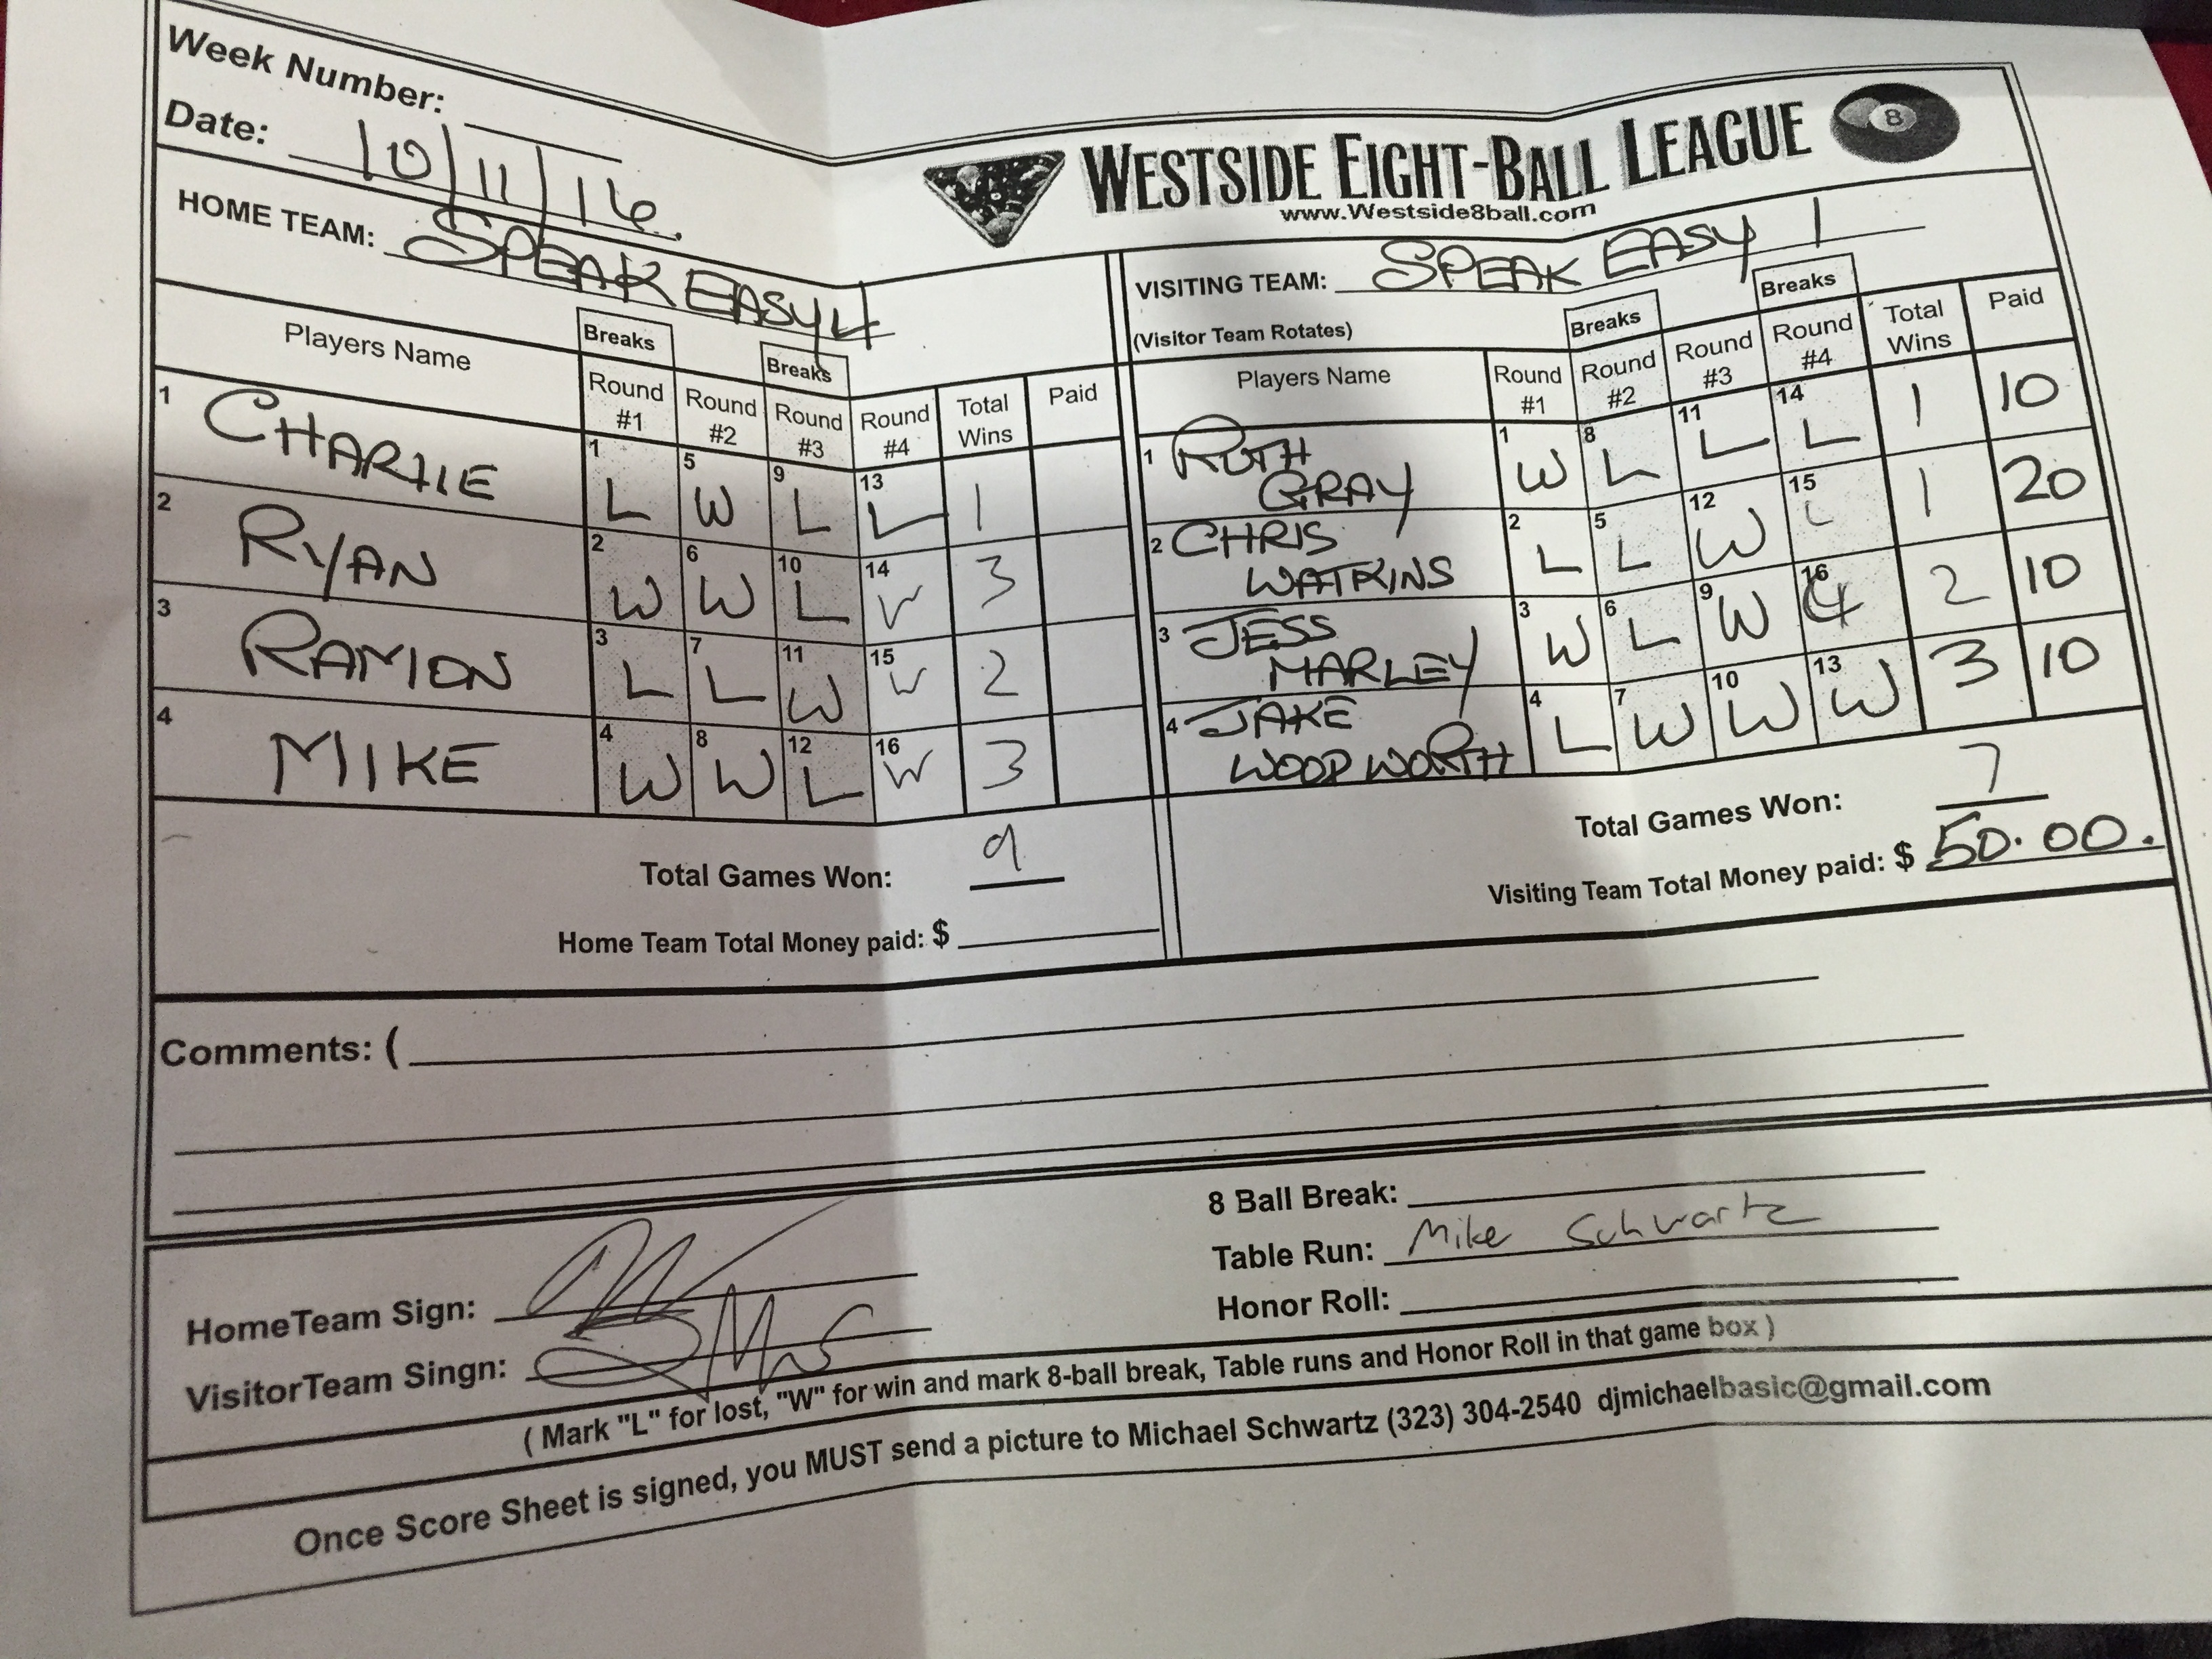 Week Number:
Date: 10/11/16.
WESTSIDE EIGHT-BALL LEAGUE
8
www.Westside8ball.com
HOME TEAM: SPEAK EASY 4
VISITING TEAM: SPEAK EASY 1
(Visitor Team Rotates)
Breaks Breaks
Players Name Round #1 Round #2 Round #3 Round #4 Total Wins Paid
1 CHARLIE 1 L 5 W 9 L 13 L 1
2 RYAN 2 W 6 W 10 L 14 W 3
3 RAMION 3 L 7 L 11 W 15 W 2
4 MIKE 4 W 8 W 12 L 16 W 3
Total Games Won: 9
Home Team Total Money paid: $
Breaks Breaks
Players Name Round #1 Round #2 Round #3 Round #4 Total Wins Paid
1 RUTH GRAY 1 W 8 L 11 L 14 L 1 10
2 CHRIS WATKINS 2 L 5 L 12 W 15 L 1 20
3 JESS MARLEY 3 W 6 L 9 W 16 2 10
4 JAKE WOODWORTH 4 L 7 W 10 W 13 W 3 10
Total Games Won: 7
Visiting Team Total Money paid: $ 50.00.
Comments: (
8 Ball Break:
Table Run: Mike Schwartz
Honor Roll:
HomeTeam Sign:
VisitorTeam Singn:
( Mark "L" for lost, "W" for win and mark 8-ball break, Table runs and Honor Roll in that game box )
Once Score Sheet is signed, you MUST send a picture to Michael Schwartz (323) 304-2540 djmichaelbasic@gmail.com